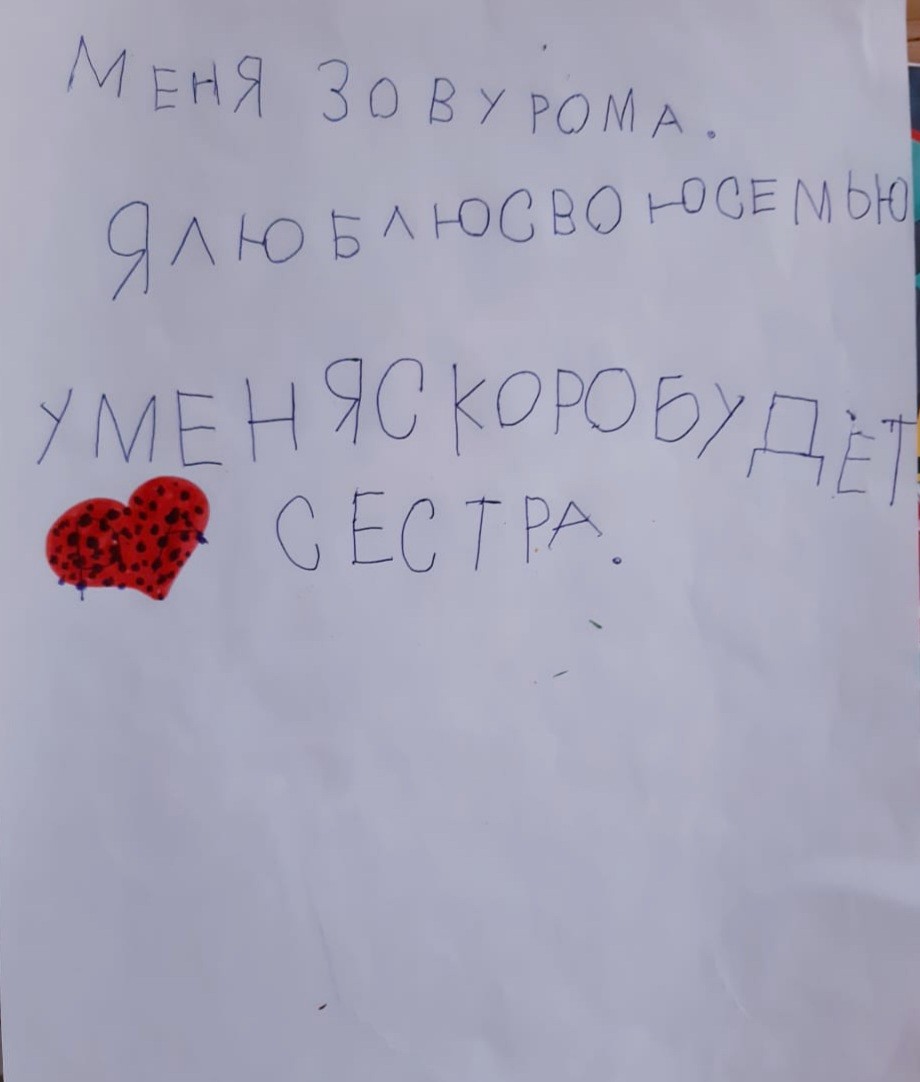 МЕНЯ ЗОВУ РОМА.
ЯЛЮБЛЮСВОЮСЕМЬЮ
УМЕНЯСКОРОБУДЁТ
СЕСТРА.